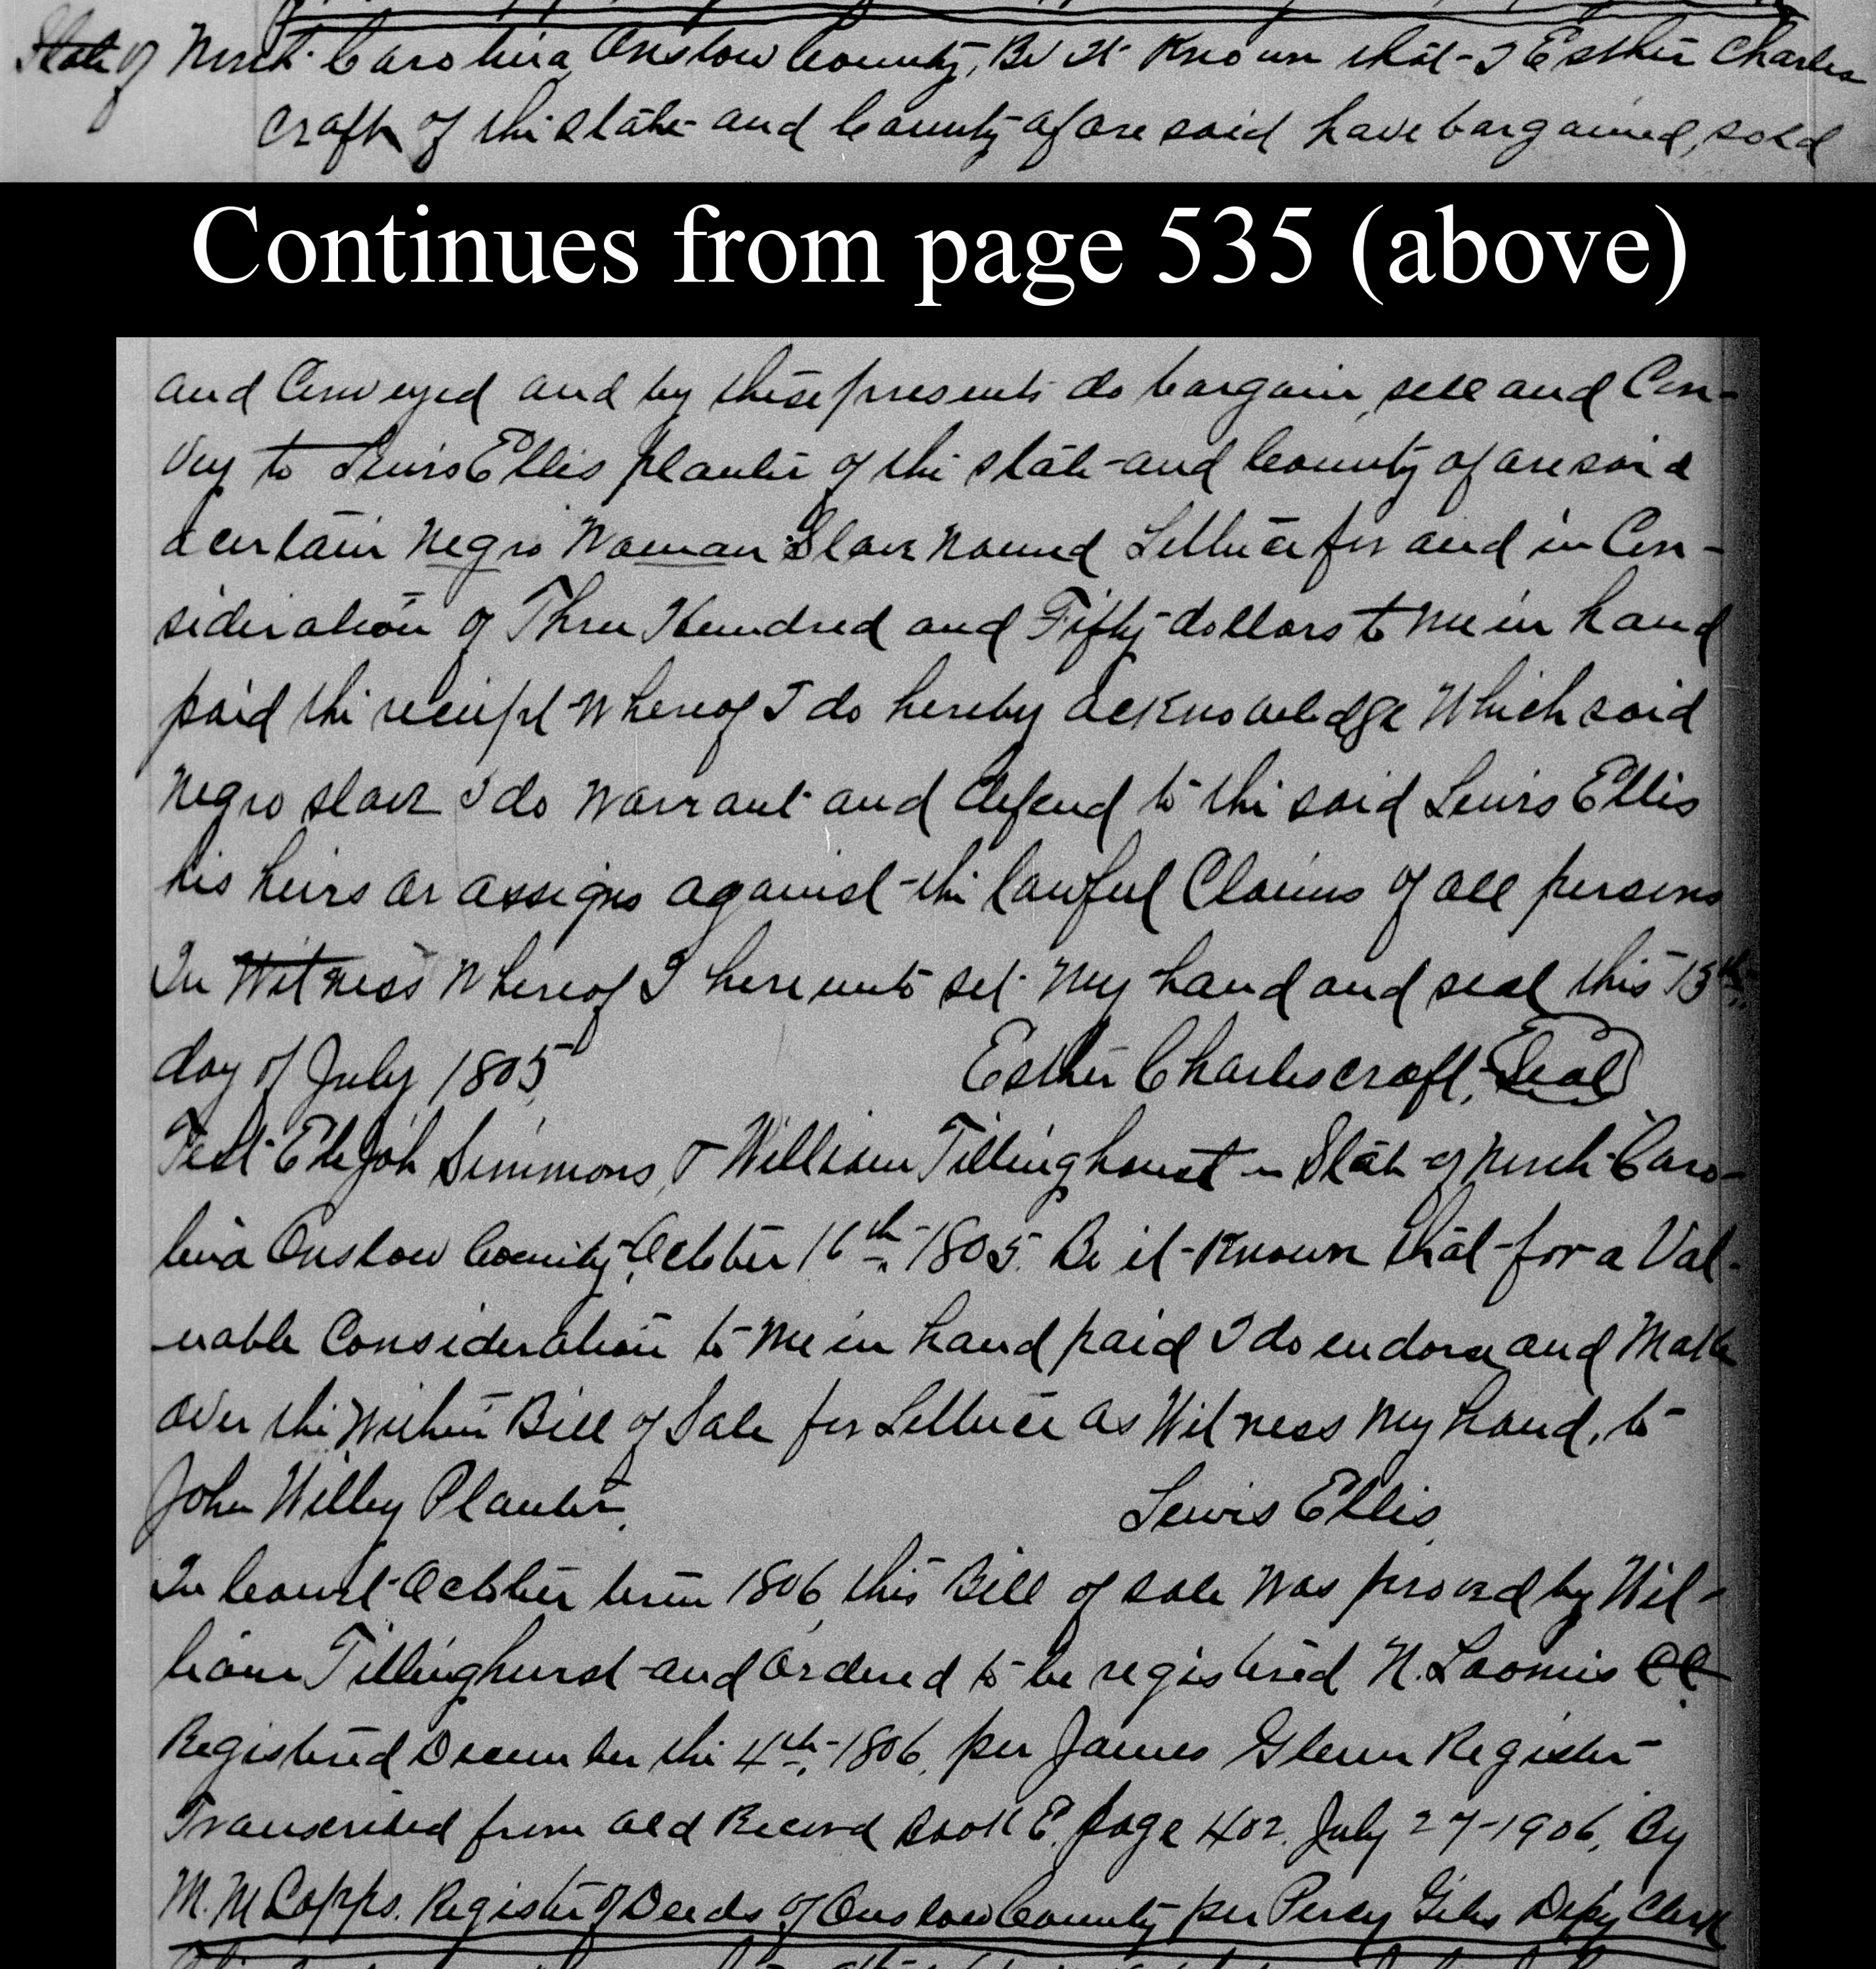 State of North Carolina Onslow County, Be It Known that I Esther Charles
craft of the state and County aforesaid have bargained, sold
Continues from page 535 (above)
and Conveyed and by these presents do bargain, sell and Con-
vey to Lewis Ellis planter of the state and County aforesaid
a certain Negro Woman Slave Named Lettuce for and in Con-
sideration of Three Hundred and Fifty dollars to me in hand
paid the receipt Whereof I do hereby acknowledge Which said
Negro slave I do Warrant and defend to the said Lewis Ellis
his heirs or assigns against the lawful Claims of all persons
In Witness Whereof I hereunto set My hand and seal this 15th.
day of July 1805 Esther Charlescraft, Seal
Test Elejah Simmons, & William Tillinghaust - State of North Caro-
lina Onslow County, October 16th. 1805. Be it Known that for a Val-
uable Consideration to Me in hand paid I do endorse and Make
over the Within Bill of Sale for Lettuce as Witness My hand, to
John Willey Planter, Lewis Ellis
In Court October term 1806 this Bill of sale Was proved by Wil-
liam Tillinghurst and Ordered to be registered N. Loomis CC.
Registered December the 4th, 1806, per James Glenn Register
Transcribed from old Record Book E. page 402. July 27-1906, By
M. M Capps. Register of Deeds of Onslow County per Percy Giles Depy Clerk